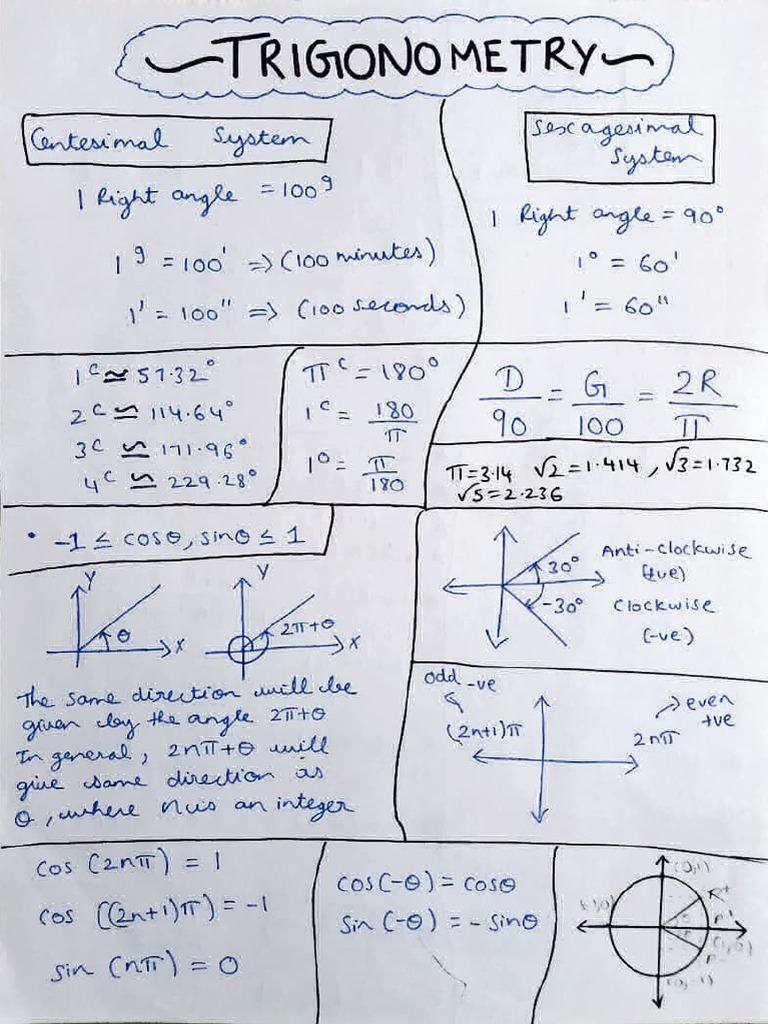 TRIGONOMETRY
Centesimal System
1 Right angle = 100ᵍ
1ᵍ = 100' => (100 minutes)
1' = 100" => (100 seconds)
Sexagesimal
System
1 Right angle = 90°
1° = 60'
1' = 60"
1ᶜ ≃ 57.32°
2ᶜ ≃ 114.64°
3ᶜ ≃ 171.96°
4ᶜ ≃ 229.28°
πᶜ = 180°
1ᶜ = 180/π
1° = π/180
D/90 = G/100 = 2R/π
π=3.14 √2=1.414, √3=1.732
√5=2.236
• -1 ≤ cosθ, sinθ ≤ 1
Y
θ
X
Y
2π+θ
X
The same direction will be
given by the angle 2π+θ
In general, 2nπ+θ will
give same direction as
θ, where n is an integer
30° Anti-clockwise
(+ve)
-30° Clockwise
(-ve)
odd -ve
(2n+1)π
even
+ve
2nπ
cos (2nπ) = 1
cos ((2n+1)π) = -1
sin (nπ) = 0
cos(-θ) = cosθ
sin (-θ) = - sinθ
(0,1)
(0,-1)